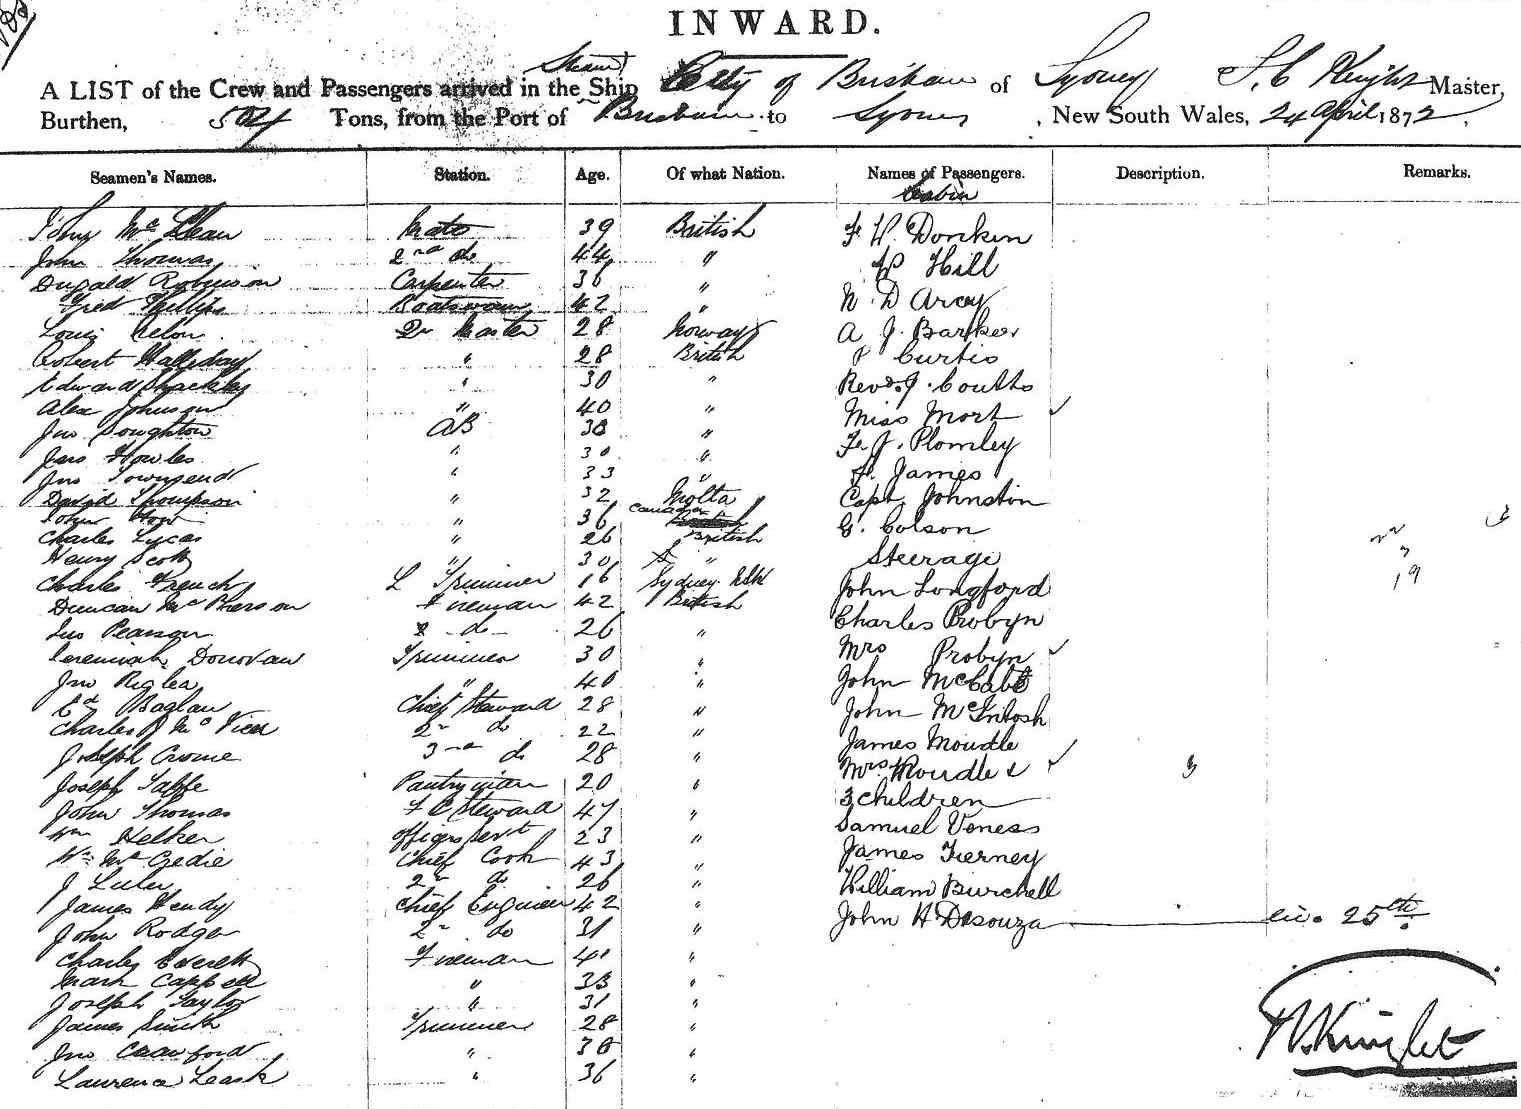 INWARD.
Steam
A LIST of the Crew and Passengers arrived in the Ship City of Brisbane of Sydney T. C. Knight Master,
Burthen, 504 Tons, from the Port of Brisbane to Sydney , New South Wales, 24 April 1872.
Seamen's Names. Station. Age. Of what Nation. Names of Passengers. Description. Remarks.
Cabin
John Mc Lean Mate 39 British F W Donkin
John Thomas 2nd do 44 " W Hill
Dugald Robinson Carpenter 36 " N. D Arcy
Fred Phillips Boatswain 42 " A J. Barker
Louis Nelson Qr Master 28 Norway J Curtis
Robert Halliday " 28 British Revd. J. Coutts
Edward Shackley " 30 " Miss Mort ✓
Alex Johnson " 40 " F. J. Plomley
Jno Boughton AB 38 " F. James
Jas Howles " 30 " Capt Johnston
Jno Townsend " 33 " G. Colson
David Thompson " 32 Malta Steerage
John How " 36 Canadian John Longford
Charles Lucas " 26 British Charles Probyn
Henry Scott " 30 " Mrs Probyn ✓
Charles French L Trimmer 16 Sydney NSW John McCabe
Duncan Mc Pherson Fireman 42 British John McIntosh
Jno Pearson do 26 " James Moudle
Jeremiah Donovan Trimmer 30 " Mrs Moudle & ✓ 3
Jno Riglea " 40 " 3 children
Ed Baglan Chief Steward 28 " Samuel Veness
Charles J Mc Vicar 2nd do 22 " James Tierney
Joseph Crowe 3rd do 28 " William Burchell
Joseph Taffe Pantryman 20 " John H Desouza etc. 25th.
John Thomas F C Steward 47 "
Wm Helker officers servt 23 "
Wm Mc Credie Chief Cook 43 "
J Luley 2nd do 26 "
James Hendy Chief Engineer 42 "
John Rodger 2nd do 31 "
Charles Everett Fireman 40 "
Mark Cappell " 33 "
Joseph Taylor " 31 "
James Smith Trimmer 28 "
Jno Crawford " 30 "
Laurence Leask " 36 "
T. Knight